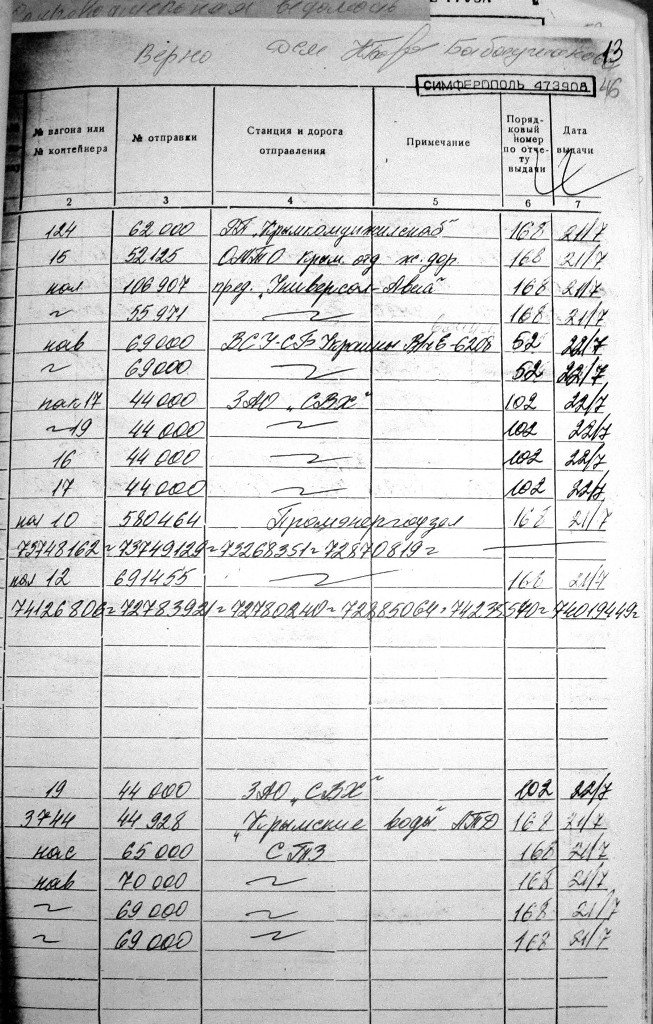 Верно
13
СИМФЕРОПОЛЬ 47390А
46
№ вагона или № контейнера № отправки Станция и дорога отправления Примечание Порядковый номер по отчету выдачи Дата выдачи
2 3 4 5 6 7
124 62 000 168 21/7
15 52125 ОМТО Крым. отд. ж. дор. 168 21/7
нал 106907 пред. „Универсал-Авиа" 168 21/7
~ 55971 ~ 168 21/7
нав 69000 ВСУ-СБ Украины 52 22/7
~ 69000 ~ 52 22/7
пак 17 44 000 ЗАО „СВХ" 102 22/7
~ 19 44 000 ~ 102 22/7
16 44 000 ~ 102 22/7
17 44 000 ~ 102 22/7
нал 10 580464 168 21/7
73748162 ~ 73749129 ~ 73268351 ~ 72870819 ~
нал 12 691455 ~ 168 21/7
74126806 ~ 72783921 ~ 72780240 ~ 72885064 ~ 74019449 ~
19 44 000 ЗАО „СВХ" 102 22/7
3744 44 928 „Крымские воды" ЛТД 168 21/7
нас 65 000 СТЗ 168 21/7
нав 70 000 ~ 168 21/7
~ 69 000 ~ 168 21/7
~ 69 000 ~ 168 21/7